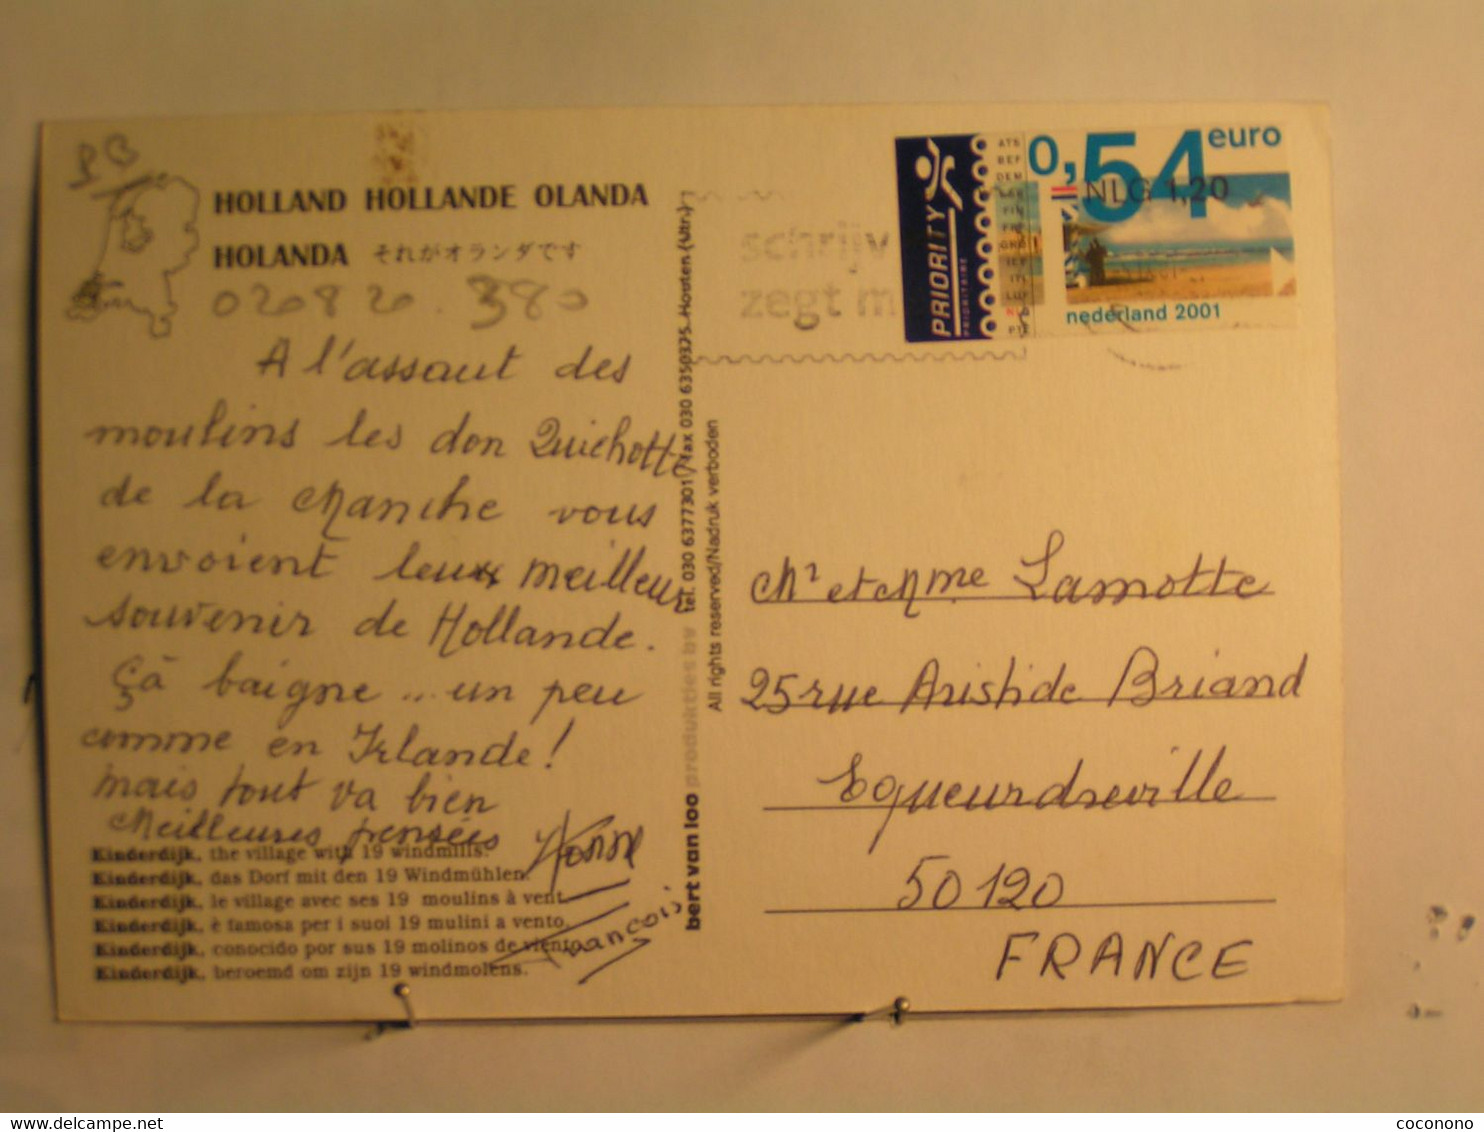 HOLLAND HOLLANDE OLANDA
HOLANDA それがオランダです
020820. 380
A l'assaut des
moulins les don Quichotte
de la Manche vous
envoient leur meilleur
souvenir de Hollande.
Çà baigne... un peu
comme en Irlande!
mais tout va bien
Meilleures pensées
Yvonne
François
Kinderdijk, the village with 19 windmills.
Kinderdijk, das Dorf mit den 19 Windmühlen.
Kinderdijk, le village avec ses 19 moulins à vent.
Kinderdijk, è famosa per i suoi 19 mulini a vento.
Kinderdijk, conocido por sus 19 molinos de viento.
Kinderdijk, beroemd om zijn 19 windmolens.
bert van loo produkties bv tel. 030 6377301 / fax 030 6350325-Houten (Utr.)
All rights reserved/Nadruk verboden
schrijv
zegt m
PRIORITY
PRIORITAIRE
0,54 euro
NLG 1,20
nederland 2001
Mr et Mme Lamotte
25 rue Aristide Briand
Equeurdreville
50120
FRANCE
www.delcampe.net
coconono